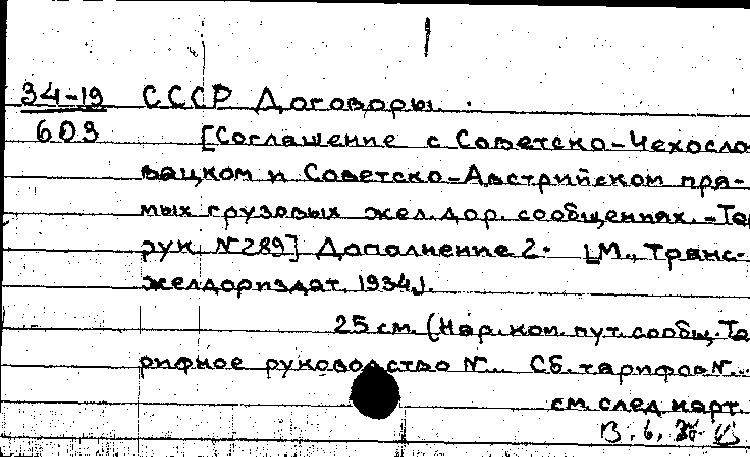 34-19 СССР Договоры.
603 [Соглашение с Советско-Чехосло
вацком и Советско-Австрийском пря-
мых грузовых жел.дор. сообщениях.-Та
рук. №289] Дополнение 2. [М., Транс-
желдориздат. 1934].
25 см. (Нар.ком. пут. сообщ. Та
рифное руководство №... Сб. тарифов №...
см. след карт.